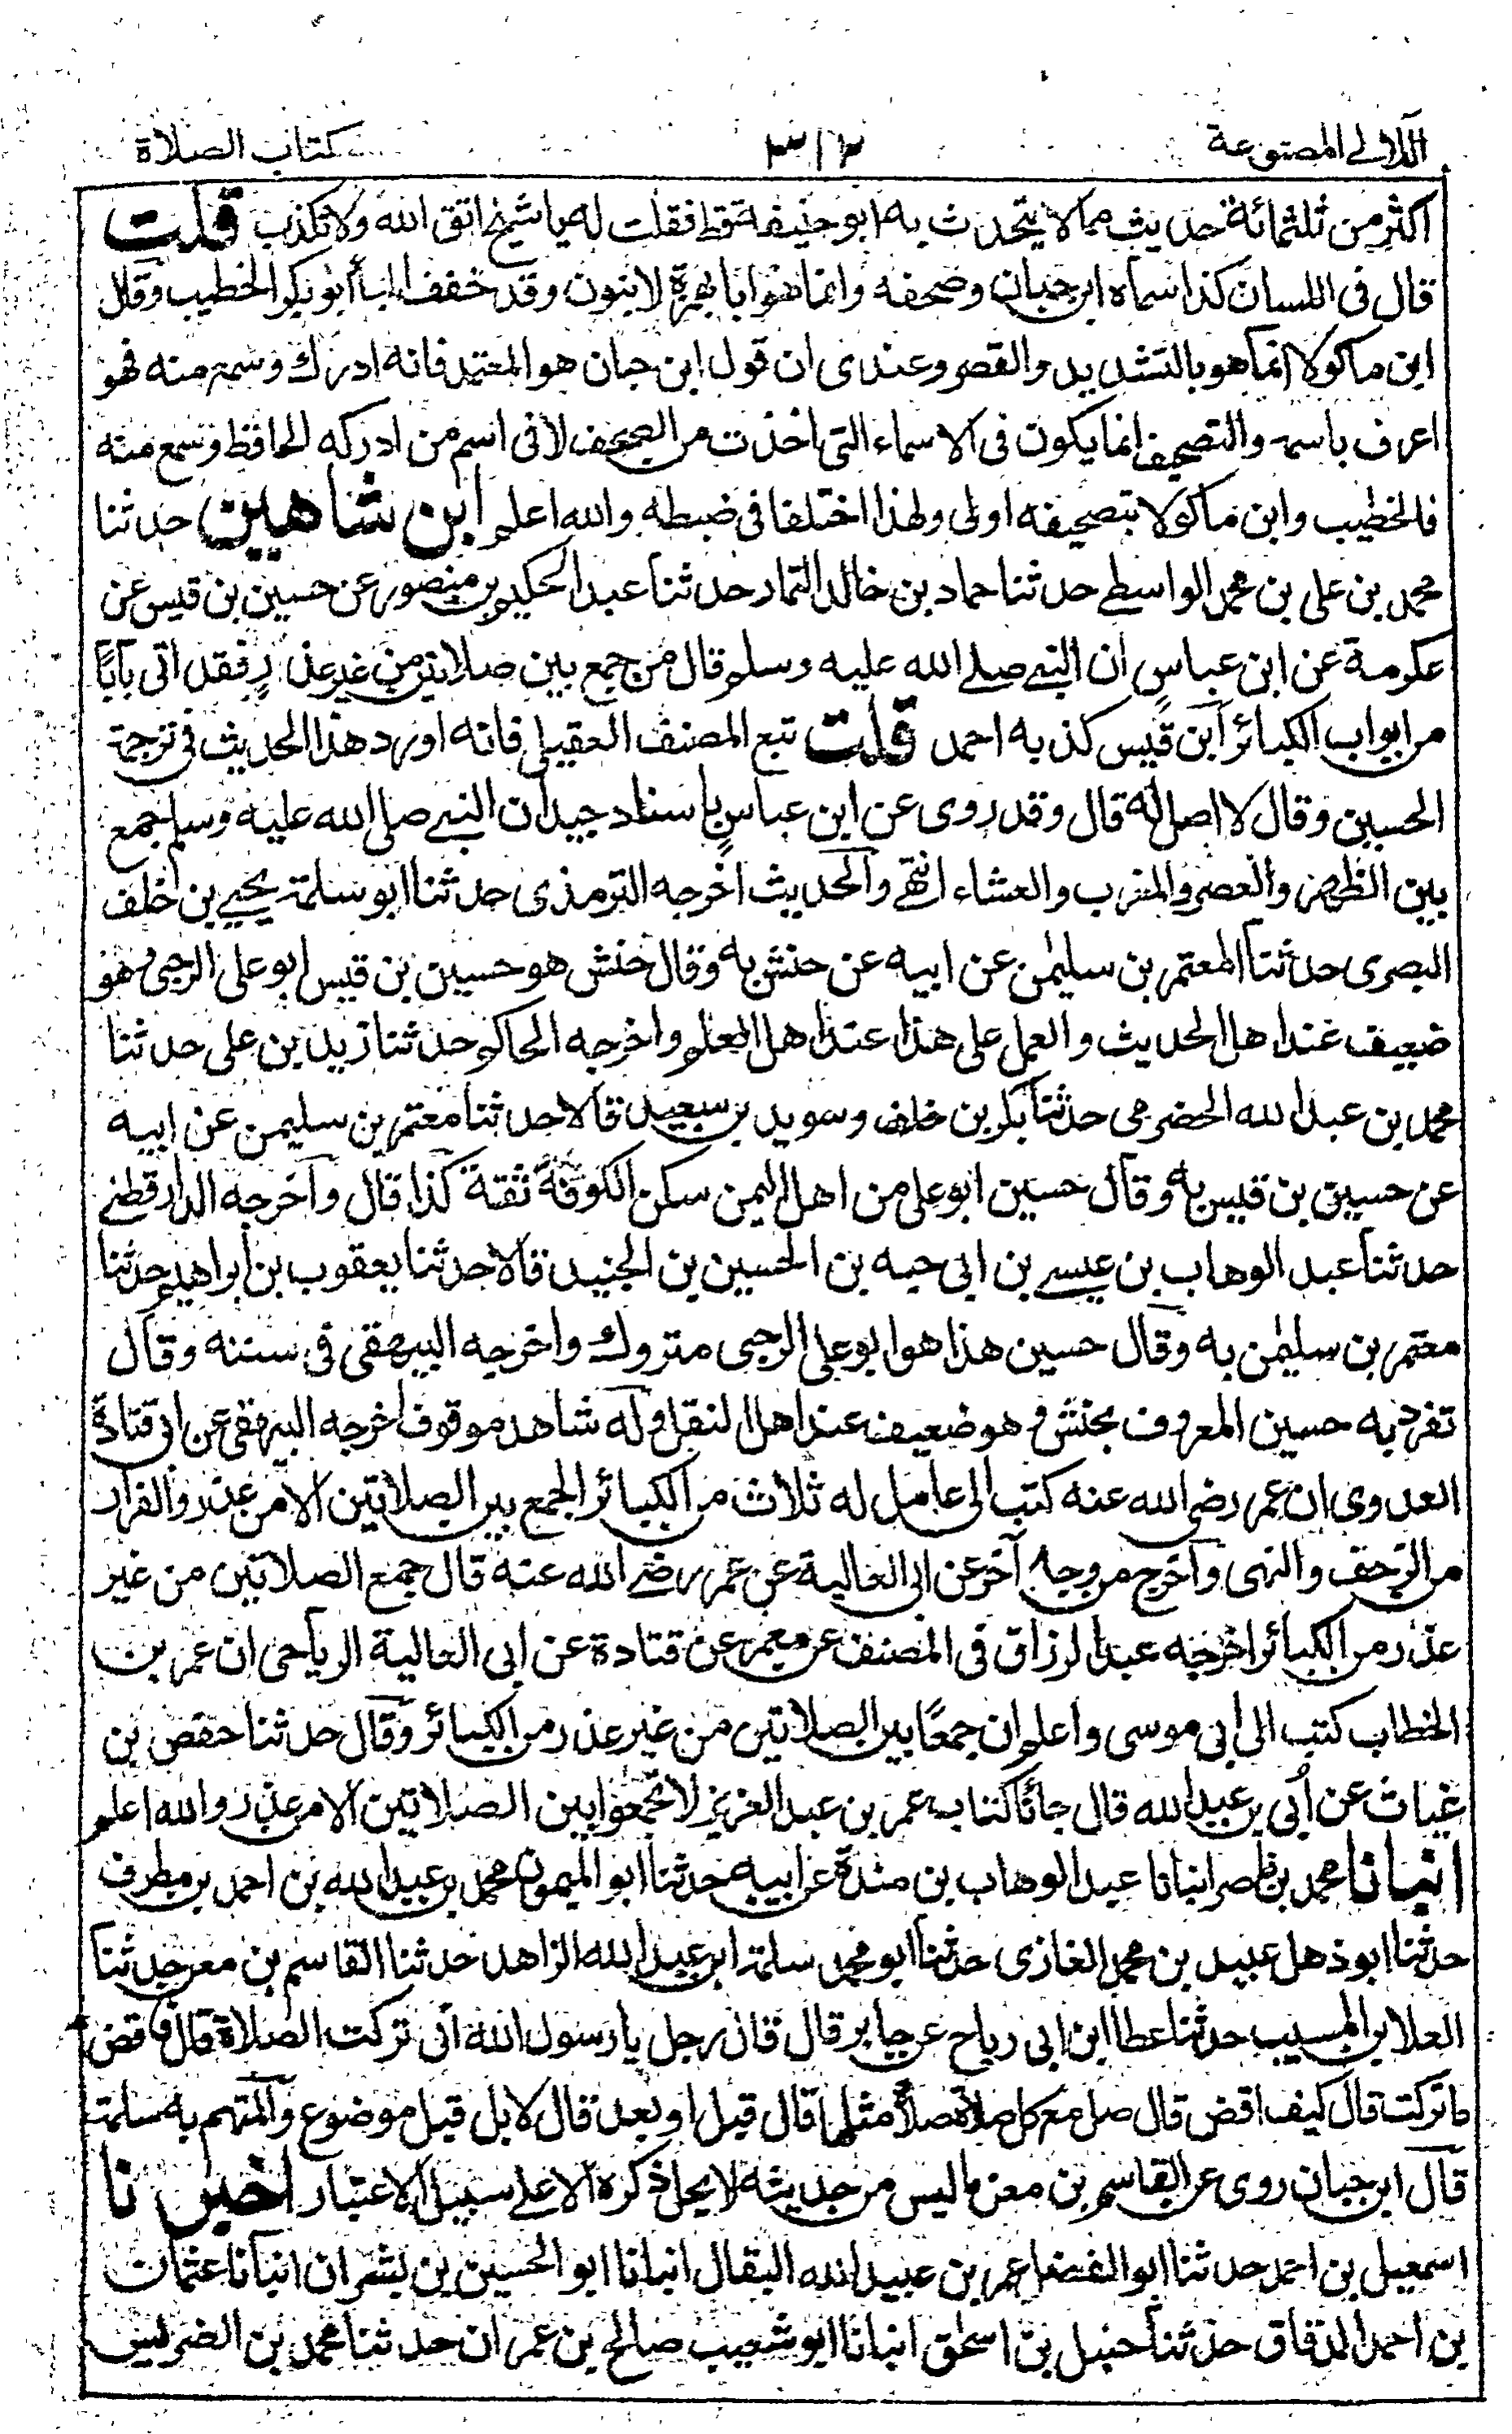 اللآلي المصنوعة ٣١٢ كتاب الصلاة
اكثر من ثلثمائة حديث مما لا يتحدث به ابو حنيفة قط فقلت له يا شيخ اتق الله ولا تكذب قلت
قال في اللسان كذا سماه ابن حبان وصحفه وانما هو ابا بهمزة لا بنون وقد خفف البا أبو بكر الخطيب وقال
ابن ماكولا انما هو بالتشديد والقصر وعندى ان قول ابن حبان هو المعتمد فانه ادرك وسمع منه فهو
اعرف باسمه والتصحيف انما يكون في الاسماء التى اخذت من الصحف لا في اسم من ادركه الحافظ وسمع منه
فالخطيب وابن ماكولا بتصحيفه اولى ولهذا اختلفا في ضبطه والله اعلم ابن شاهين حدثنا
محمد بن على بن محمد الواسطے حدثنا حماد بن خالد التمار حدثنا عبد الحكيم بن منصور عن حسين بن قيس عن
عكرمة عن ابن عباس ان النبے صلے الله عليه وسلم قال من جمع بين صلاتين من غير عذر فقد اتى بابًا
من ابواب الكبائر ابن قيس كذبه احمد قلت تبع المصنف العقيلى فانه اورد هذا الحديث في ترجمة
الحسين وقال لا اصل له قال وقد روى عن ابن عباس باسناد جيد ان النبے صلى الله عليه وسلم جمع
بين الظهر والعصر والمغرب والعشاء انتهے والحديث اخرجه الترمذى حدثنا ابو سلمة يحيے بن خلف
البصرى حدثنا المعتمر بن سليمٰن عن ابيه عن حنش به وقال حنش هو حسين بن قيس ابو على الرحبى وهو
ضعيف عند اهل الحديث والعمل على هذا عند اهل العلم واخرجه الحاكم حدثنا زيد بن على حدثنا
محمد بن عبد الله الحضرمى حدثنا بكر بن خلف وسويد بن سعيد قالا حدثنا معتمر بن سليمن عن ابيه
عن حسين بن قيس به وقال حسين ابو على من اهل اليمن سكن الكوفة ثقة كذا قال وأخرجه الدارقطنے
حدثنا عبد الوهاب بن عيسے بن ابى حيه بن الحسين بن الجنيد قالا حدثنا يعقوب بن ابراهيم حدثنا
معتمر بن سليمٰن به وقال حسين هذا هو ابو على الرحبى متروك واخرجه البيهقى فى سننه وقال
تفرد به حسين المعروف بحنش و هو ضعيف عند اهل النقل وله شاهد موقوف اخرجه البيهقى عن ابى قتادة
العدوى ان عمر رضى الله عنه كتب الى عامل له ثلاث من الكبائر الجمع بين الصلاتين الا من عذر والفرار
من الزحف والنهى وأخرج من وجه آخر عن ابى العالية عن عمر رضے الله عنه قال جمع الصلاتين من غير
عذر من الكبائر اخرجه عبد الرزاق فى المصنف عن معمر عن قتادة عن ابى العالية الرياحى ان عمر بن
الخطاب كتب الى ابى موسى واعلم ان جمعًا بين الصلاتين من غير عذر من الكبائر وقال حدثنا حفص بن
غياث عن أبى بن عبد الله قال جائنا كتاب عمر بن عبد العزيز لا تجمعوا بين الصلاتين الا من عذر والله اعلم
انبانا محمد بن ناصر انبانا عبد الوهاب بن مندة عن ابيه حدثنا ابو الميمون محمد بن عبيد الله بن احمد بن مطرف
حدثنا ابو ذهل عبيد بن محمد الغازى حدثنا ابو محمد سلمة ابن عبد الله الزاهد حدثنا القاسم بن معن حدثنا
العلا بن المسيب حدثنا عطا ابن ابى رباح عن جابر قال قال رجل يا رسول الله انى تركت الصلاة قال فاقض
ما تركت قال كيف اقض قال صل مع كل صلاة صلاة مثلها قال قبل او بعد قال لا بل قبل موضوع والمتهم به سلمة
قال ابن حبان روى عن القاسم بن معن ما ليس من حديثه لا يحل ذكره الا على سبيل الاعتبار اخبرنا
اسمعيل بن احمد حدثنا ابو الفضل عمر بن عبيد الله البقال انبانا ابو الحسين بن بشران انبانا عثمان
بن احمد الدقاق حدثنا حنبل بن اسحٰق انبانا ابو شعيب صالح بن عمران حدثنا محمد بن الضريس